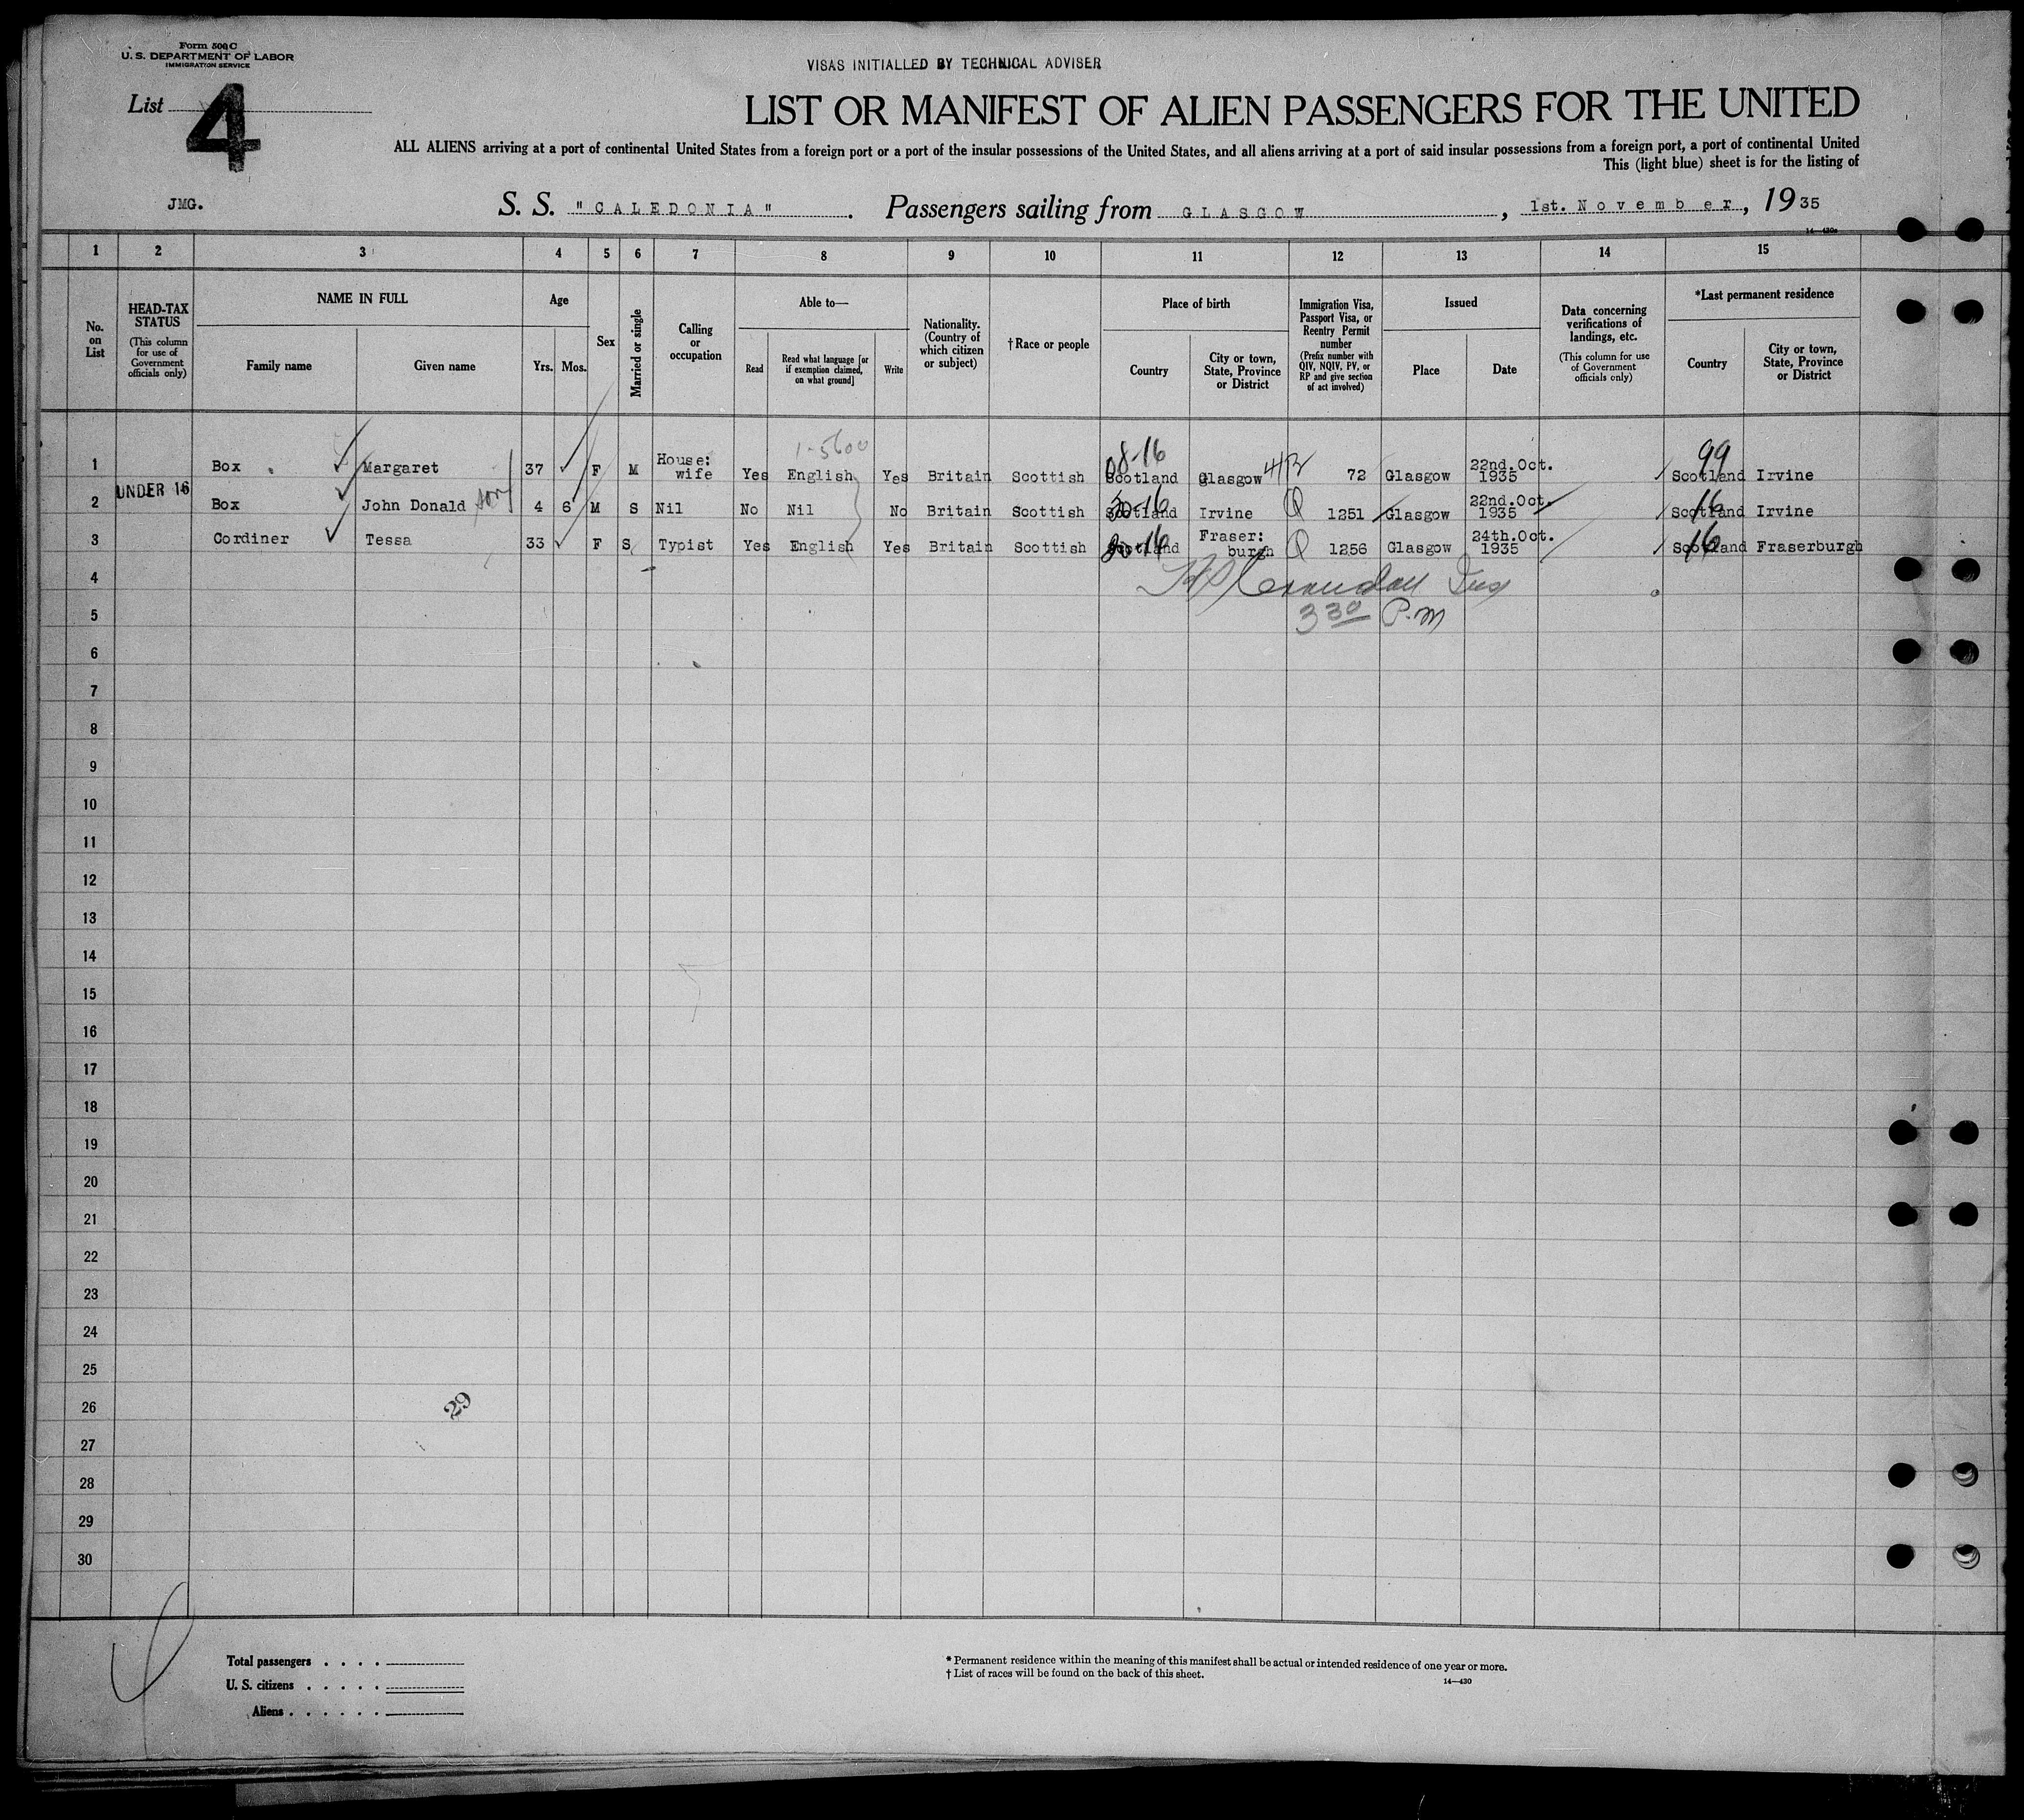 Form 500 C
U. S. DEPARTMENT OF LABOR
IMMIGRATION SERVICE
VISAS INITIALLED BY TECHNICAL ADVISER
List 4
LIST OR MANIFEST OF ALIEN PASSENGERS FOR THE UNITED
ALL ALIENS arriving at a port of continental United States from a foreign port or a port of the insular possessions of the United States, and all aliens arriving at a port of said insular possessions from a foreign port, a port of continental United
This (light blue) sheet is for the listing of
JMG.
S. S. "CALEDONIA". Passengers sailing from GLASGOW, 1st. November, 1935
14—430a
1 2 3 4 5 6 7 8 9 10 11 12 13 14 15
No. on List
HEAD-TAX STATUS
(This column for use of Government officials only)
NAME IN FULL
Family name
Given name
Age
Yrs. Mos.
Sex
Married or single
Calling or occupation
Able to—
Read
Read what language [or if exemption claimed, on what ground]
Write
Nationality. (Country of which citizen or subject)
† Race or people
Place of birth
Country
City or town, State, Province or District
Immigration Visa, Passport Visa, or Reentry Permit number
(Prefix number with QIV, NQIV, PV, or RP and give section of act involved)
Issued
Place
Date
Data concerning verifications of landings, etc.
(This column for use of Government officials only)
*Last permanent residence
Country
City or town, State, Province or District
1-5600 08-16 99
1 Box Margaret 37 F M House: wife Yes English Yes Britain Scottish Scotland Glasgow 72 Glasgow 22nd.Oct. 1935 Scotland Irvine
UNDER 16
2 Box John Donald son 4 6 M S Nil No Nil No Britain Scottish Scotland Irvine Q 1251 Glasgow 22nd.Oct. 1935 16 Scotland Irvine
3 Cordiner Tessa 33 F S Typist Yes English Yes Britain Scottish Scotland Fraser: burgh Q 1256 Glasgow 24th.Oct. 1935 16 Scotland Fraserburgh
4
5 3 30 P.M
6
7
8
9
10
11
12
13
14
15
16
17
18
19
20
21
22
23
24
25
26 29
27
28
29
30
Total passengers . . . .
U. S. citizens . . . . .
Aliens . . . . . .
* Permanent residence within the meaning of this manifest shall be actual or intended residence of one year or more.
† List of races will be found on the back of this sheet.
14—430